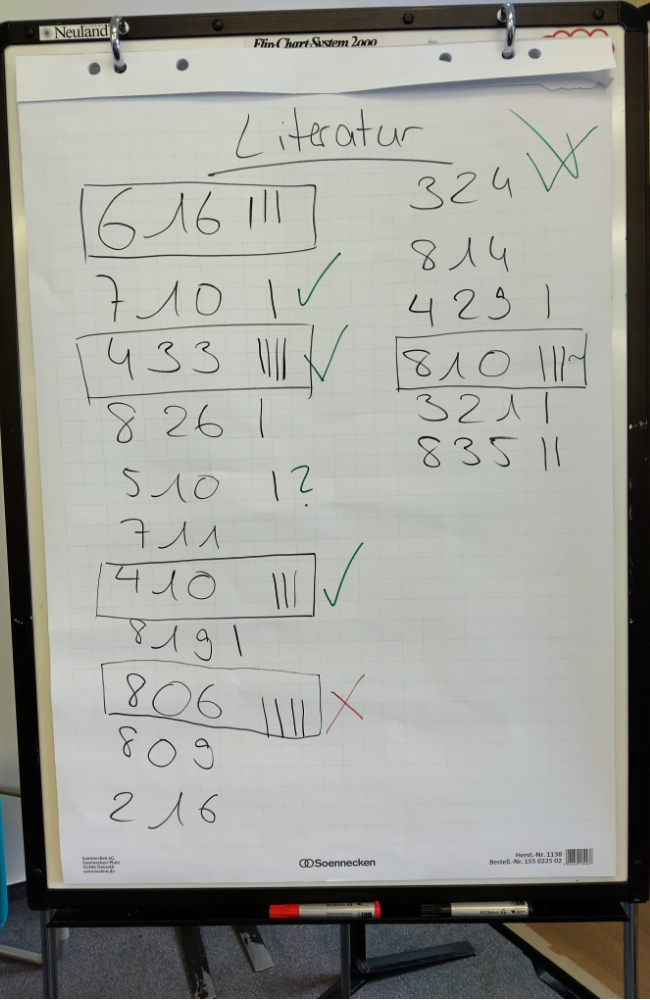 Neuland
Flip Chart System 2000
Literatur
616 |||
710 | ✓
433 |||| ✓
826 |
510 | ?
711
410 ||| ✓
819 |
806 |||| X
809
216
324
814
429 |
810 |||~
321 |
835 ||
Soennecken eG
Soennecken-Platz
51491 Overath
soennecken.de
Soennecken
Herst.-Nr. 1138
Bestell.-Nr. 155 0225 02